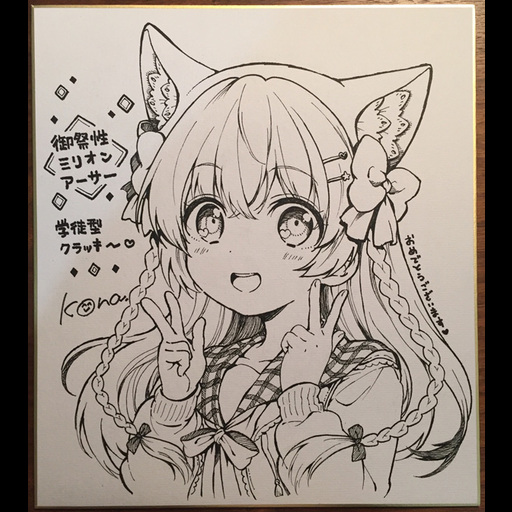 御祭性
ミリオン
アーサー
学徒型
クラッキ〜♡
Kona
おめでとうございます♡